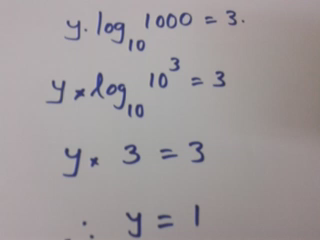 y. log₁₀ 1000 = 3.
y × log₁₀ 10³ = 3
y × 3 = 3
∴ y = 1